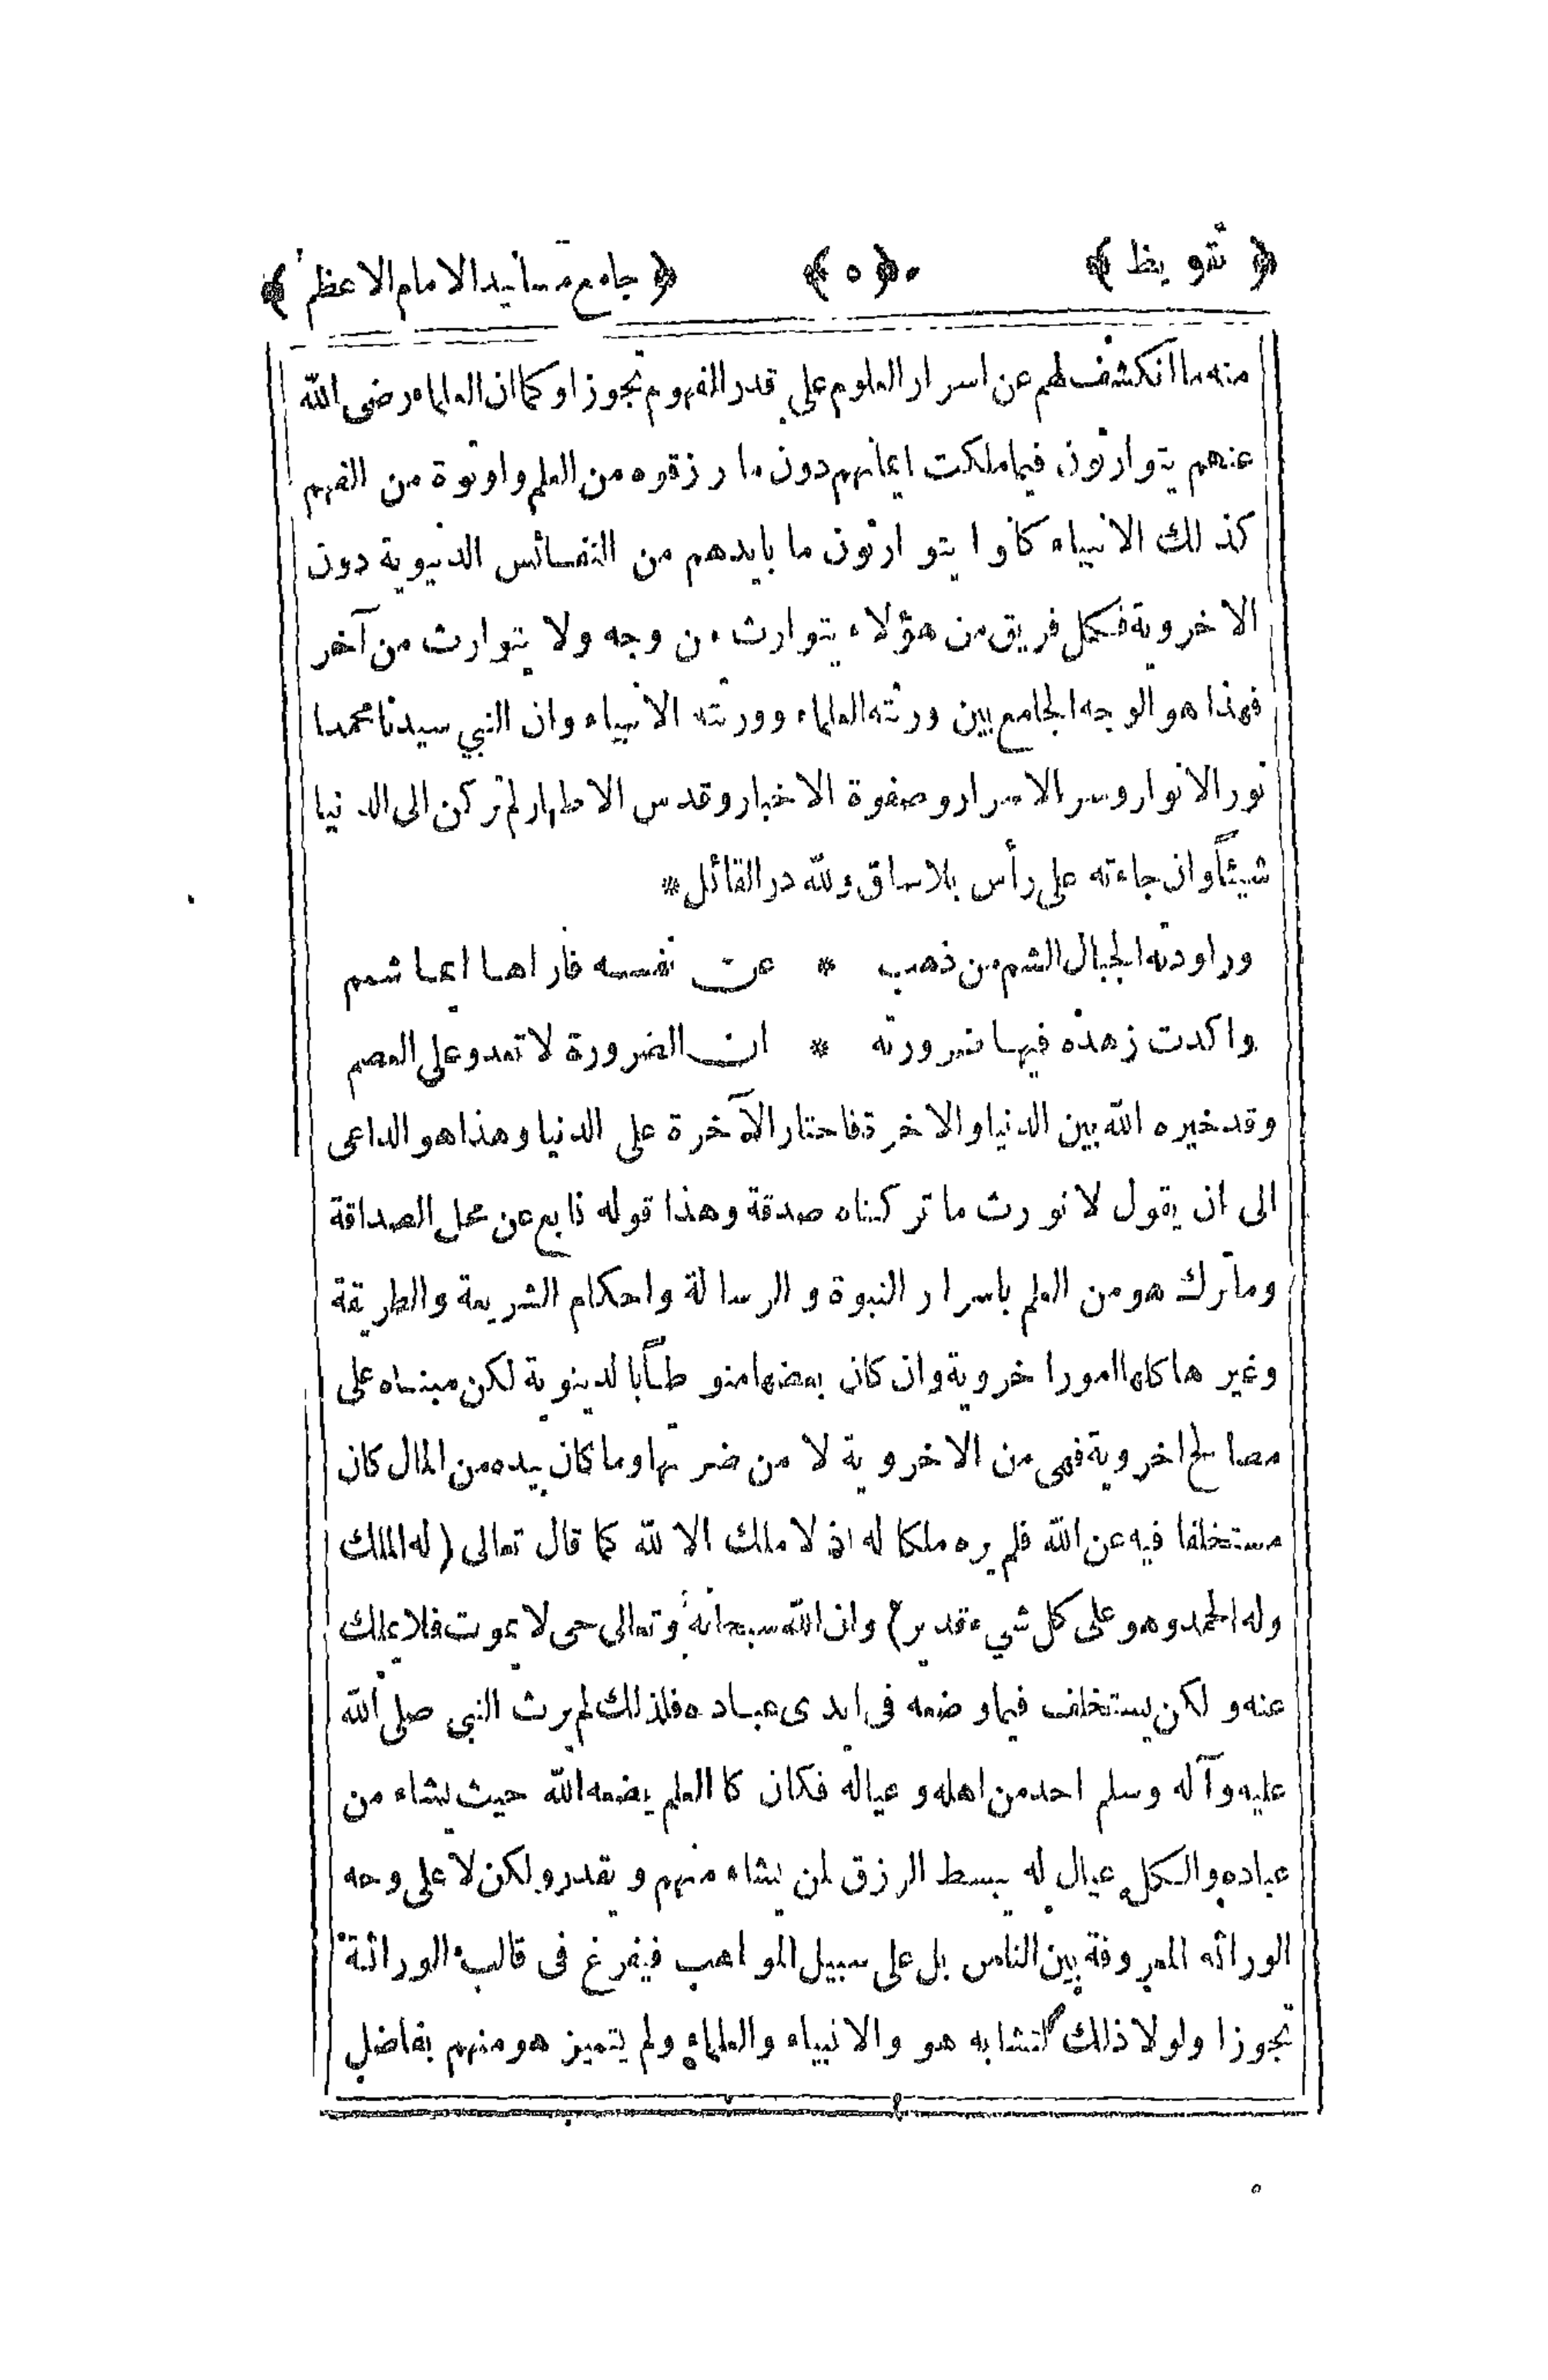 ﴿ تقويظ ﴾ ﴿ ٥ ﴾ ﴿ جامع مسانيد الامام الاعظم ﴾
منه ما انكشف لهم عن اسرار العلوم على قدر الفهوم تجوزا وكما ان العلماء رضى الله
عنهم يتوارثون فيما ملكت ايمانهم دون ما رزقوه من العلم واوتوة من الفهم
كذلك الانبياء كانوا يتوارثون ما بايدهم من النفسائس الدنيوية دون
الاخروية فكل فريق من هؤلاء يتوارث من وجه ولا يتوارث من آخر
فهذا هو الوجه الجامع بين ورثته العلماء وورثته الانبياء وان النبي سيدنا محمدا
نور الانوار وسر الاسرار وصفوة الاخبار وقدس الاطهار لم تركن الى الدنيا
شيئاً وان جاءته على رأس بلا ساق ولله در القائل *
وراودته الجبال الشم من ذهب * عن نفسه فاراها ايما شمم
واكدت زهده فيها ضرورته * ان الضرورة لا تعدو على العصم
وقد خيره الله بين الدنيا والاخرة فاختار الآخرة على الدنيا وهذا هو الداعى
الى ان يقول لا نورث ما تركناه صدقة وهذا قوله نابع عن محل الصداقة
وما ترك هو من العلم باسرار النبوة والرسالة واحكام الشريعة والطريقة
وغيرها كلها امورا خروية وان كان بعضها منو طاًبا لدينوية لكن مبناه على
مصالح اخروية فهى من الاخروية لا من ضرتها وما كان بيده من المال كان
مستخلفا فيه عن الله فلم يره ملكا له اذ لا ملك الا لله كما قال تعالى (له الملك
وله الحمد وهو على كل شيء قدير) وان الله سبحانه وتعالى حى لا يموت فلا يملك
عنه ولكن يستخلف فيما وضعه فى ايدى عباده فلذلك لم يرث النبي صلى الله
عليه وآله وسلم احد من اهله وعياله فكان كا العلم يضعه الله حيث يشاء من
عباده والكل عيال له يبسط الرزق لمن يشاء منهم ويقدر ولكن لا على وجه
الوراثه المعروفة بين الناس بل على سبيل المواهب فيفرغ فى قالب الوراثة
تجوزا ولولا ذلك لتشابه هو والانبياء والعلماء ولم يتميز هو منهم بفاضل